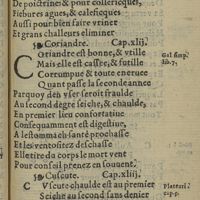 De poictrine, & pour collericques,
Fiebures agues, & calesicques
Aussi pour bien faire vriner
Et grans challeurs eliminer
Coriandre. Cap.xlij.
COriandre est bonne, & vtille
Mais elle est casse, & futille
Corrompue & toute eneruee
Quant passe la seconde annee
Parquoy den vser seroit fraulde
Au second degre seiche, & chaulde,
En premier lieu confortatiue
Consequamment est digestiue,
A lestommach santé prochasse
Et les ventositez deschasse
Elle tire du corps le mort vent
Pour conseil prenez en souuent.
Cuscute. Cap.xliij.
CVscute chaulde est au premier
Seiche au second sans denier
Gal simp.
lib.7.
Platear.
cap.